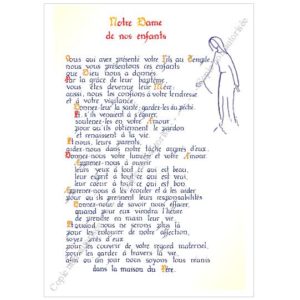 Notre Dame
de nos enfants
Vous qui avez présenté votre Fils au Temple,
nous vous présentons ces enfants
que Dieu nous a donnés.
Par la grâce de leur baptême,
vous êtes devenue leur Mère,
aussi, nous les confions à votre tendresse
et à votre vigilance.
Donnez-leur la santé, gardez-les du péché.
S'ils viennent à s'égarer,
soutenez-les en votre Amour
pour qu'ils obtiennent le pardon
et renaissent à la vie.
A nous, leurs parents,
aidez-nous dans notre tâche auprès d'eux.
Donnez-nous votre lumière et votre Amour.
Apprenez-nous
leurs yeux à tout ce qui est beau,
leur esprit à tout ce qui est vrai,
leur coeur à tout ce qui est bon.
Apprenez-nous à les écouter et à les aimer
pour qu'ils prennent leurs responsabilités.
Donnez-nous de savoir nous effacer,
quand pour eux viendra l'heure
de prendre en main leur vie.
Quand nous ne serons plus là
pour les entourer de notre affection,
soyez près d'eux
pour les couvrir de votre regard maternel,
pour les garder à travers la vie,
afin qu'un jour nous soyons tous réunis
dans la maison du Père.